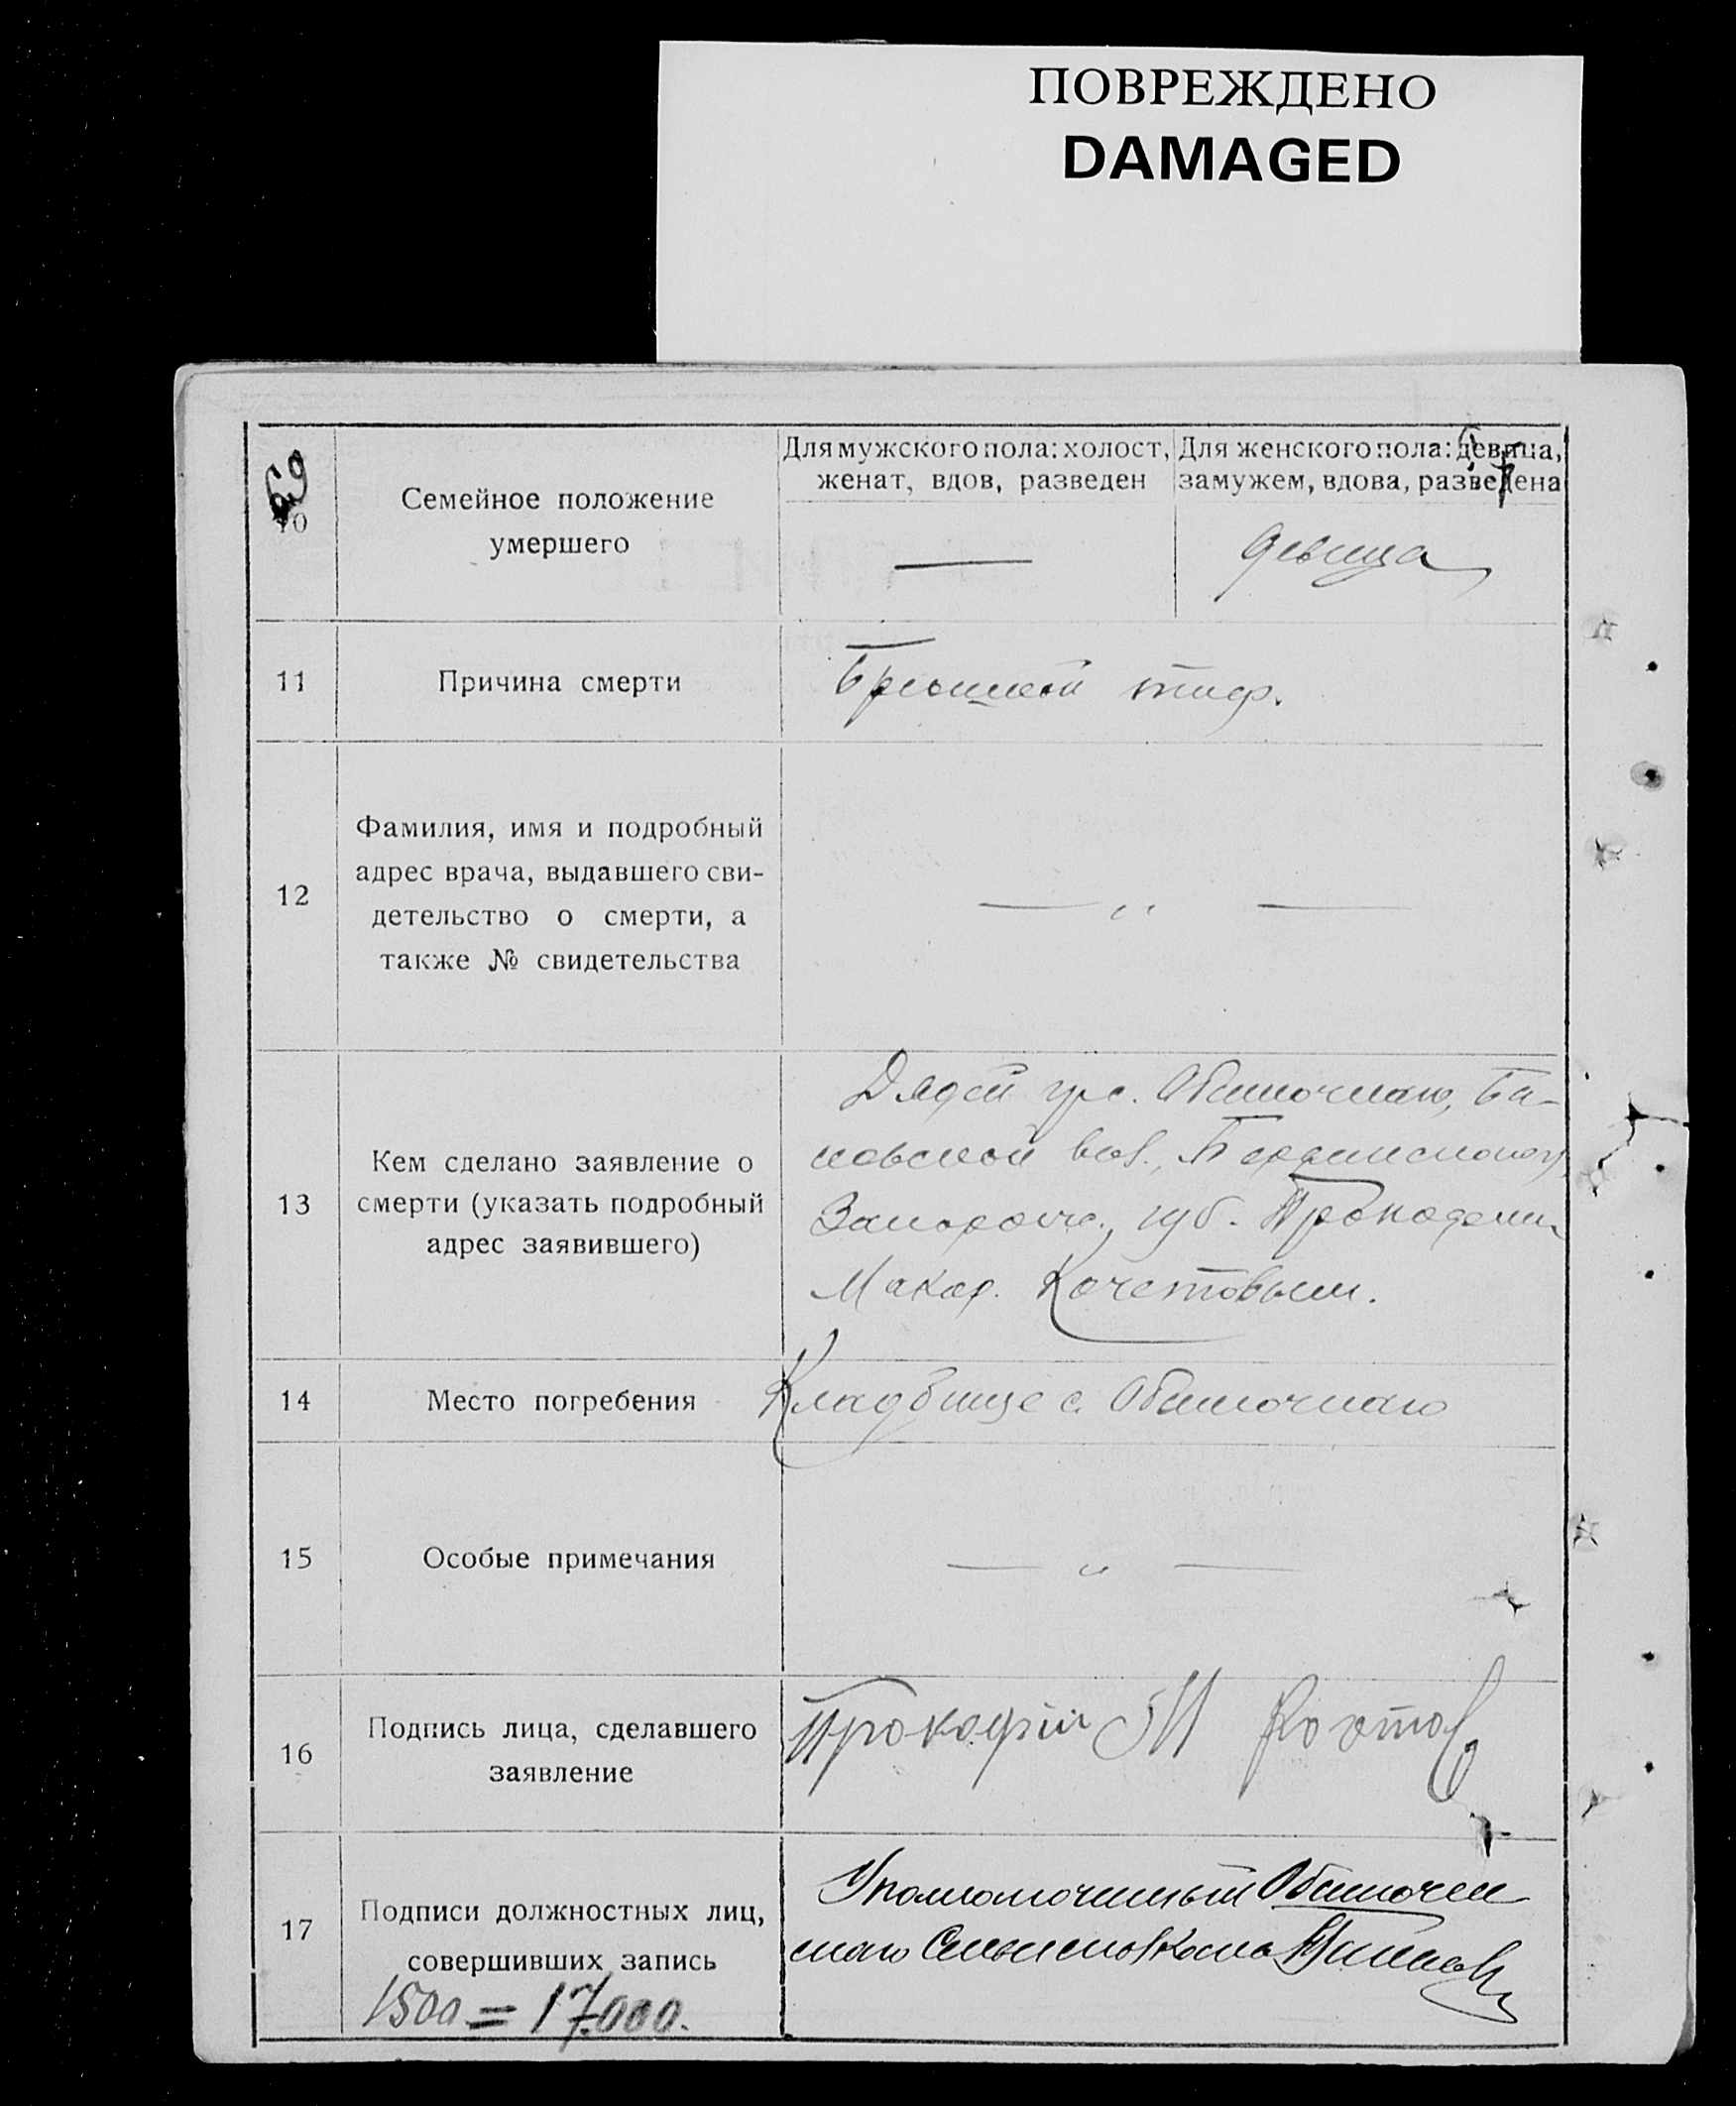 ПОВРЕЖДЕНО
DAMAGED
69
10
Семейное положение
умершего
Для мужского пола: холост,
женат, вдов, разведен
Для женского пола: девица,
замужем, вдова, разведена
—
девица
11
Причина смерти
Брюшной тиф.
12
Фамилия, имя и подробный
адрес врача, выдавшего сви-
детельство о смерти, а
также № свидетельства
— „ —
13
Кем сделано заявление о
смерти (указать подробный
адрес заявившего)
Дядей гр. с. Обиточного,
вол., Бердянского у.
Запорож. губ. Прокофием
Макар. Кочетовым.
14
Место погребения
Кладбище с. Обиточного
15
Особые примечания
— „ —
16
Подпись лица, сделавшего
заявление
Прокофий М
17
Подписи должностных лиц,
совершивших запись
Уполномоченный Обиточен
ского Сельисполкома
1500 = 17.000.